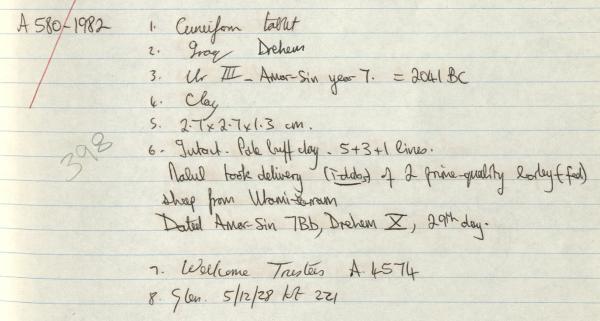 A 580-1982
1. Cuneiform tablet
2. Iraq Drehem
3. Ur III - Amar-Sin year 7. = 2041 BC
4. Clay
5. 2.7 x 2.7 x 1.3 cm.
398
6. Intact. Pale buff clay. 5+3+1 lines.
took delivery of 2 prime-quality barley-(fed)
sheep from
Dated Amar-Sin 7Bb, Drehem X, 29th day.
7. Wellcome Trustees A 4574
8. Glen. 5/12/28 lot 221